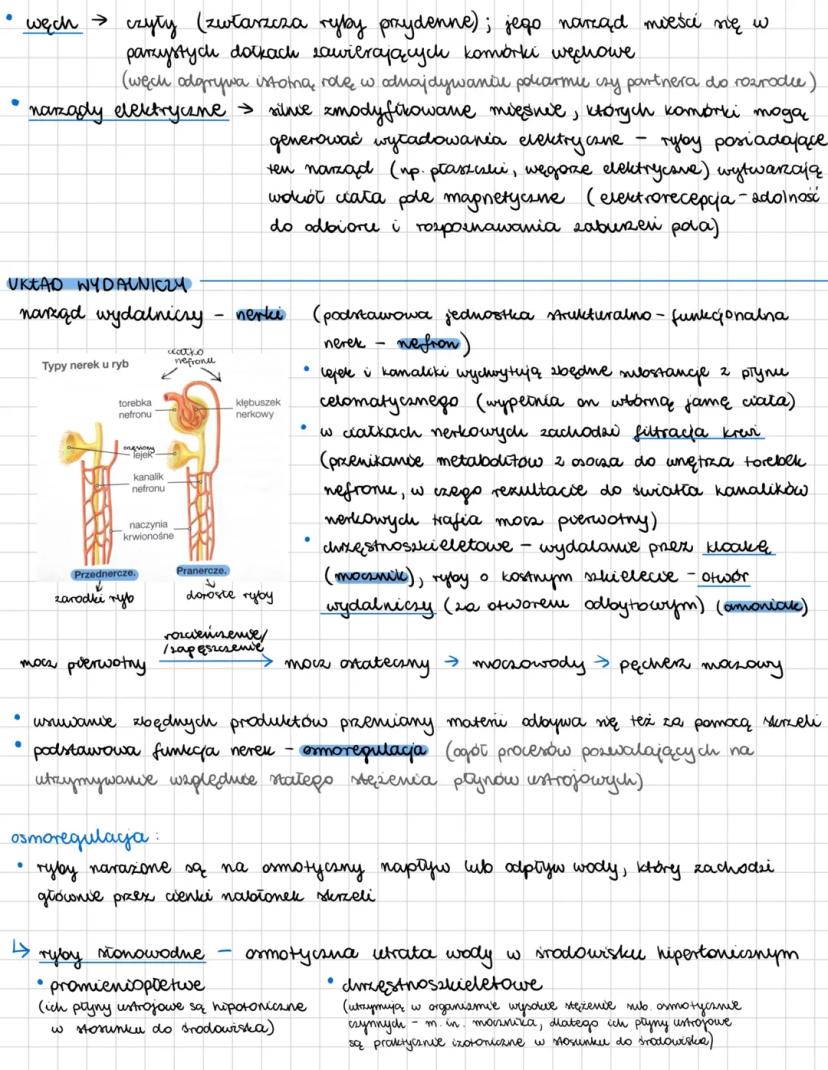 • węch → czyły (zwłaszcza ryby przydenne); jego narząd mieści się w
parzystych dołkach zawierających komórki węchowe
(węch odgrywa istotną rolę w odnajdywaniu pokarmu czy partnera do rozrodu)
• narządy elektryczne → silnie zmodyfikowane mięśnie, których komórki mogą
generować wyładowania elektryczne - ryby posiadające
ten narząd (np. płaszczki, węgorze elektryczne) wytwarzają
wokół ciała pole magnetyczne (elektrorecepcja - zdolność
do odbioru i rozpoznawania zaburzeń pola)
UKŁAD WYDALNICZY
narząd wydalniczy - nerki (podstawowa jednostka strukturalno-funkcjonalna
nerek - nefron)
Typy nerek u ryb
ciałko
nefronu
torebka
nefronu
kłębuszek
nerkowy
orzęsiony
lejek
kanalik
nefronu
naczynia
krwionośne
Przednercze.
Pranercze.
zarodki ryb
dorosłe ryby
• lejek i kanaliki wychwytują zbędne substancje z płynu
celomatycznego (wypełnia on wtórną jamę ciała)
• w ciałkach nerkowych zachodzi filtracja krwi
(przenikanie metabolitów z osocza do wnętrza torebek
nefronu, w czego rezultacie do światła kanalików
nerkowych trafia mocz pierwotny)
• chrzęstnoszkieletowe - wydalanie przez kloakę
(mocznik), ryby o kostnym szkielecie - otwór
wydalniczy (za otworem odbytowym) (amoniak)
rozcieńczenie/
/zagęszczenie
mocz pierwotny → mocz ostateczny → moczowody → pęcherz moczowy
• usuwanie zbędnych produktów przemiany materii odbywa się też za pomocą skrzeli
• podstawowa funkcja nerek - osmoregulacja (ogół procesów pozwalających na
utrzymywanie względnie stałego stężenia płynów ustrojowych)
osmoregulacja:
• ryby narażone są na osmotyczny napływ lub odpływ wody, który zachodzi
głównie przez cienki nabłonek skrzeli
↳ ryby słonowodne - osmotyczna utrata wody w środowisku hipertonicznym
• promieniopłetwe
(ich płyny ustrojowe są hipotoniczne
w stosunku do środowiska)
• chrzęstnoszkieletowe
(utrzymują w organizmie wysokie stężenie sub. osmotycznie
czynnych - m.in. mocznika, dlatego ich płyny ustrojowe
są praktycznie izotoniczne w stosunku do środowiska)